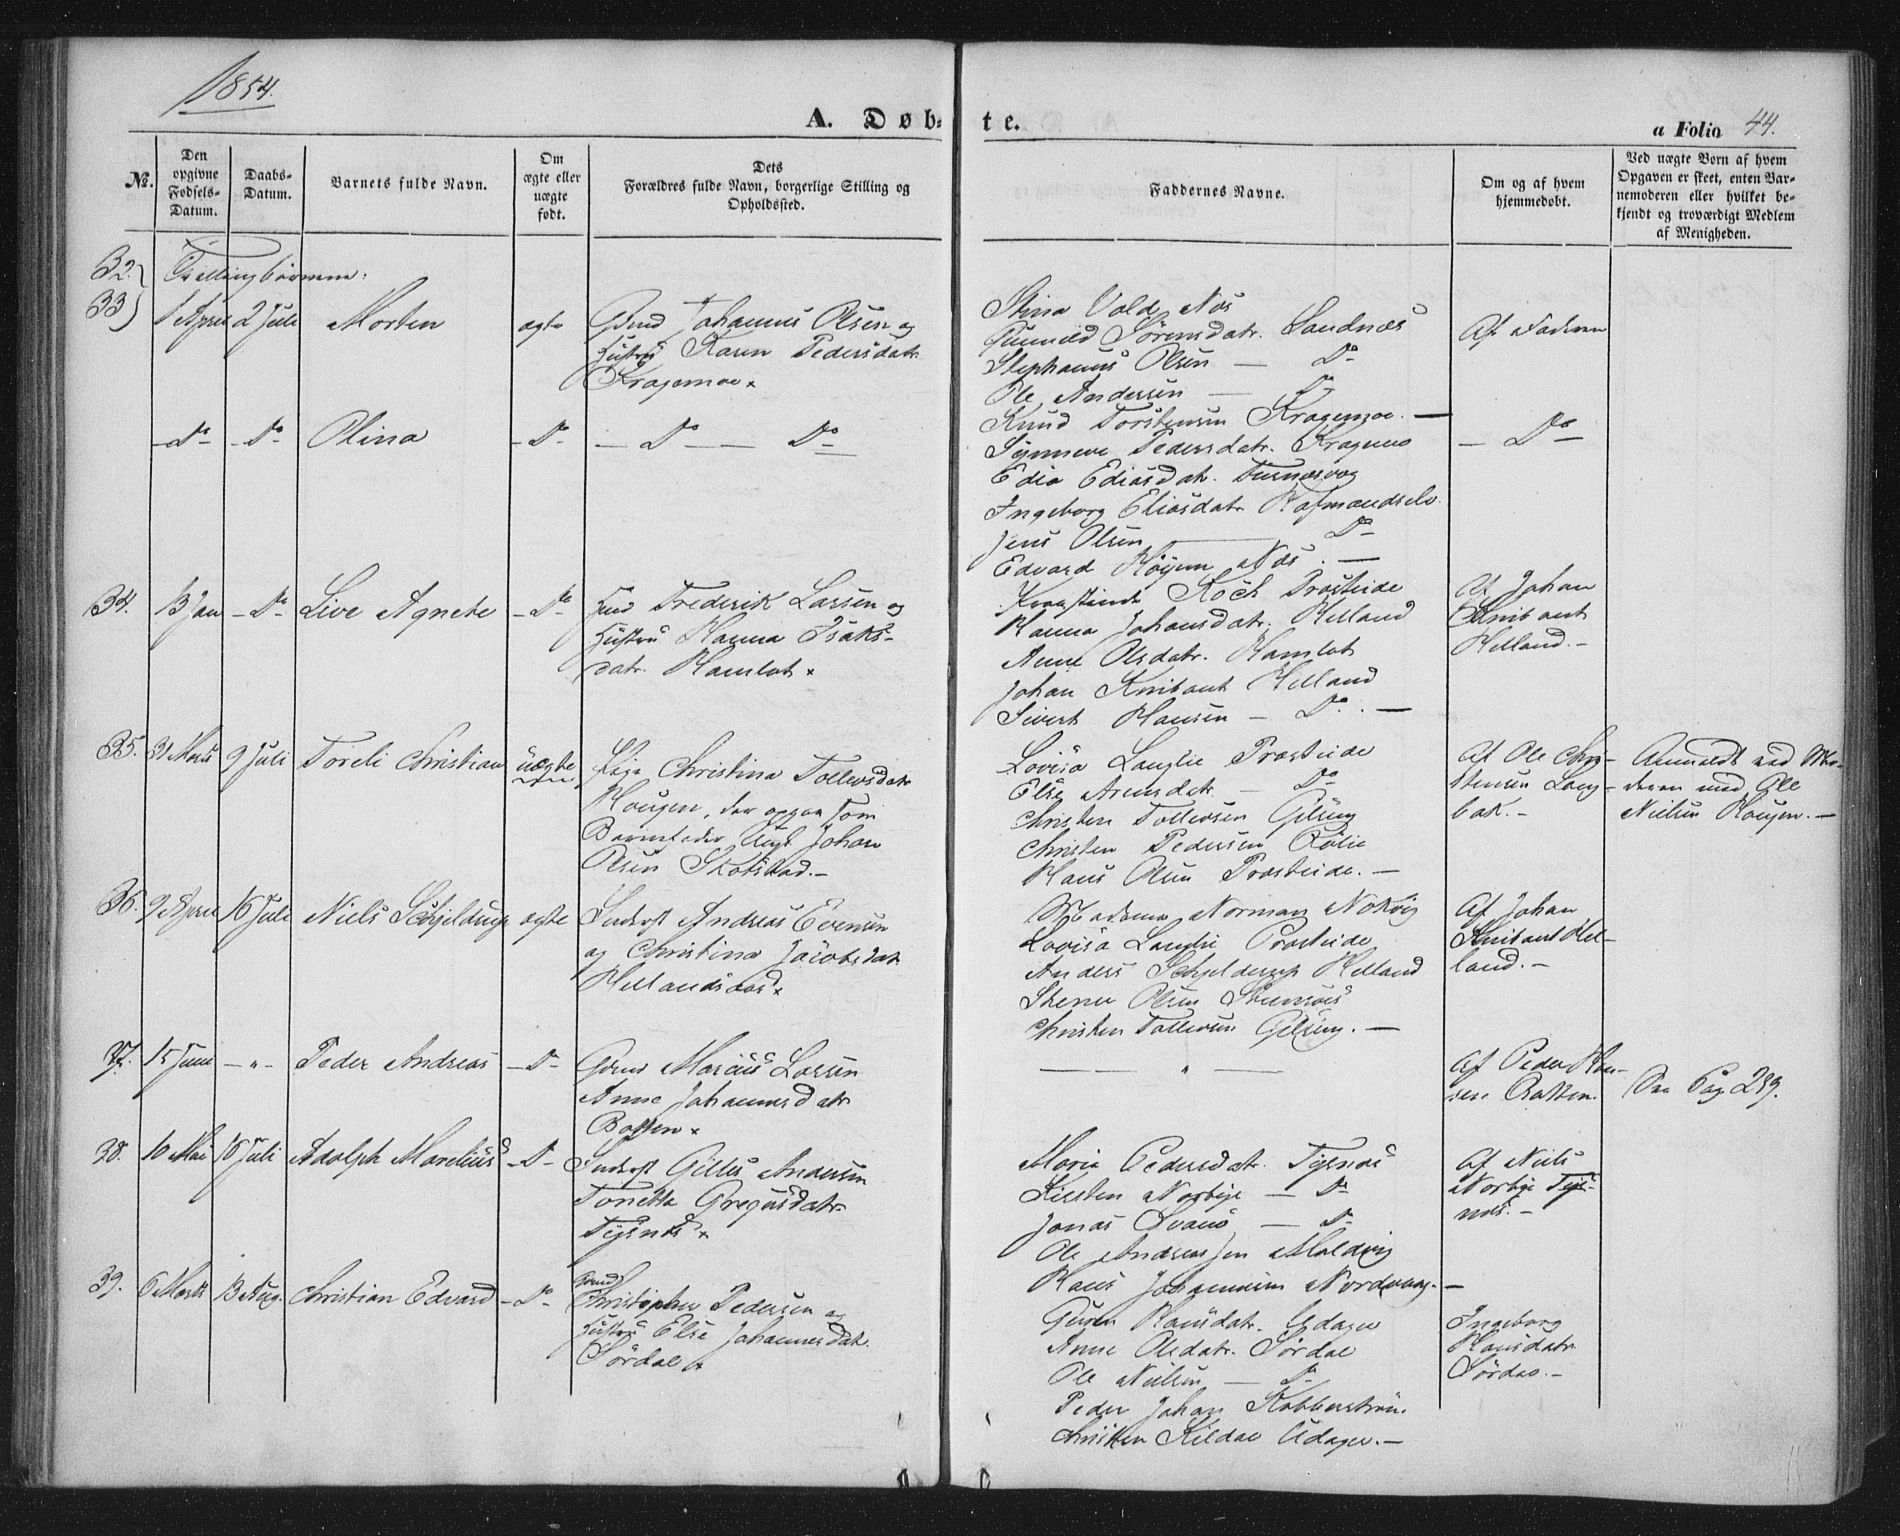 1854.
A. Døbte.
a Folio 44.
No.
Den opgivne Fødsels-Datum.
Daabs-Datum.
Barnets fulde Navn.
Om ægte eller uægte født.
Dets Forældres fulde Navn, borgerlige Stilling og Opholdssted.
Faddernes Navne.
Om og af hvem hjemmedøbt.
Ved uægte Børn af hvem Opgaven er skeet, enten Barnemoderen eller hvilket bekjendt og troværdigt Medlem af Menigheden.
32.
33
Tvillingbørnene:
1 April 2 Juli Morten ægte
Johannes Olsen og
Hustru Karen Pedersdatr
Kragemoe
Stina Vold Næs
Sørensdatr. Sandnæs
Stephanus Olsen — Do
Ole Andersen — Do
Knud Torstensen Kragemoe. —
Af Faderen
Do Do Olina Do Do Do
Synneve Pedersdatr. Kragmo
Edia Ediasdatr.
Ingeborg Eliasdatr
Jens Olsen Do
Edvard Høyem Næs. —
Do
34. 13 Jan Do Live Agnete Do
Frederik Larsen og
Hustru Hanna Isaks-
datr. Hamlot
Koch Præsteide
Hanna Johansdatr. Helland
Anne Olsdatr. Hamlot
Johan Helland
Sivert Hansen — Do. —
Af Johan
Helland. —
35. 31 Marts 9 Juli Toreli Christian uægte
Pige Christina Tollevsdatr
Hougen, der opgav som
Barnefader Ungk Johan
Olsen Skotstad. —
Lovisa Langlie Præsteide
Else Arensdatr. — Do
Christen Tollevsen
Christen Pedersen
Hans Olsen Præsteide. —
Af Ole Chri-
stensen Lang-
bak. —
Anmeldt ved Mo-
deren med Ole
Nielsen Hougen. —
36. 9 April 16 Juli Niels Schjeldrup ægte
Inderst Andreas Evensen
og Christina Jacobsdat
Hellandsaas
Madame Norman
Lovisa Langlie Præsteide
Anders Schjelderup Helland
Olsen
Christen Tollevsen
Af Johan
Hel-
land. —
37. 15 Juni — " — Peder Andreas — Do —
Gbmd Marius Larsen
Anne Johannesdatr
— " —
Af Peder Han-
sen
See Pag 289.
38. 10 Mai 16 Juli Adolph Marelius — Do —
Inderst Gilles Andersen
Tonetta Gregusdatr
Tysnes
Maria Pedersdatr. Tysnæs
Kirsten Norbye — Do
Jonas Svanø — Do
Ole Andreassen
Hans Johannesen
Af Niels
Norbye Tys-
næs. —
39. 6 Marts 13 Aug. Christian Edvard — Do —
Gbmd
Christopher Pedersen og
Hustru Else Johannesdatr.
Sørdal
Guren Hansdatr. Udager
Anne Olsdatr. Sørdal
Ole Nielsen — Do
Peder Johan
Christen Kildal Udager. —
Ingeborg
Hansdatr
Sørdal. —